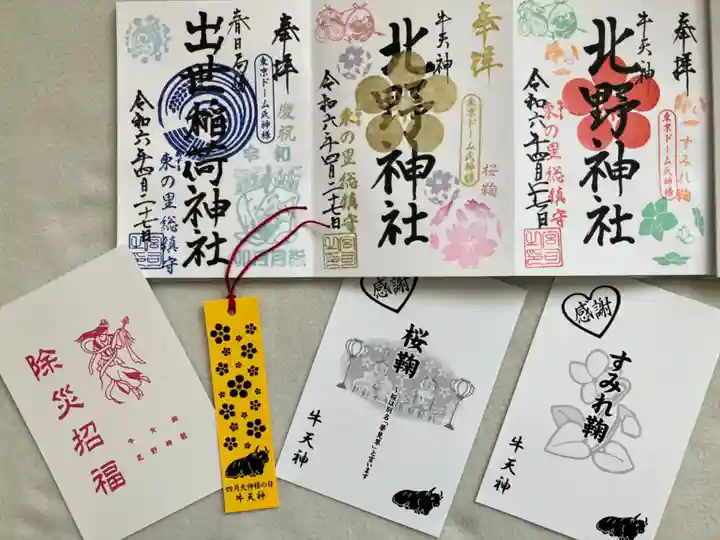 奉拝
春日局
出世稲荷神社
東京ドーム氏神様
慶祝
令和六年四月二十七日
東の里総鎮守
奉拝
牛天神
北野神社
東京ドーム氏神様
桜鞠
令和六年四月二十七日
東の里総鎮守
奉拝
牛天神
北野神社
東京ドーム氏神様
すみれ鞠
令和六年四月二十七日
東の里総鎮守
除災招福
牛天神
北野神社
四月天神様の日
牛天神
感謝
桜鞠
~桜は別名「夢見草」と言います
牛天神
感謝
すみれ鞠
牛天神